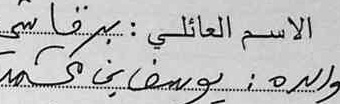 الاسم العائلي : برقاشي
والده : يوسف بن محمد